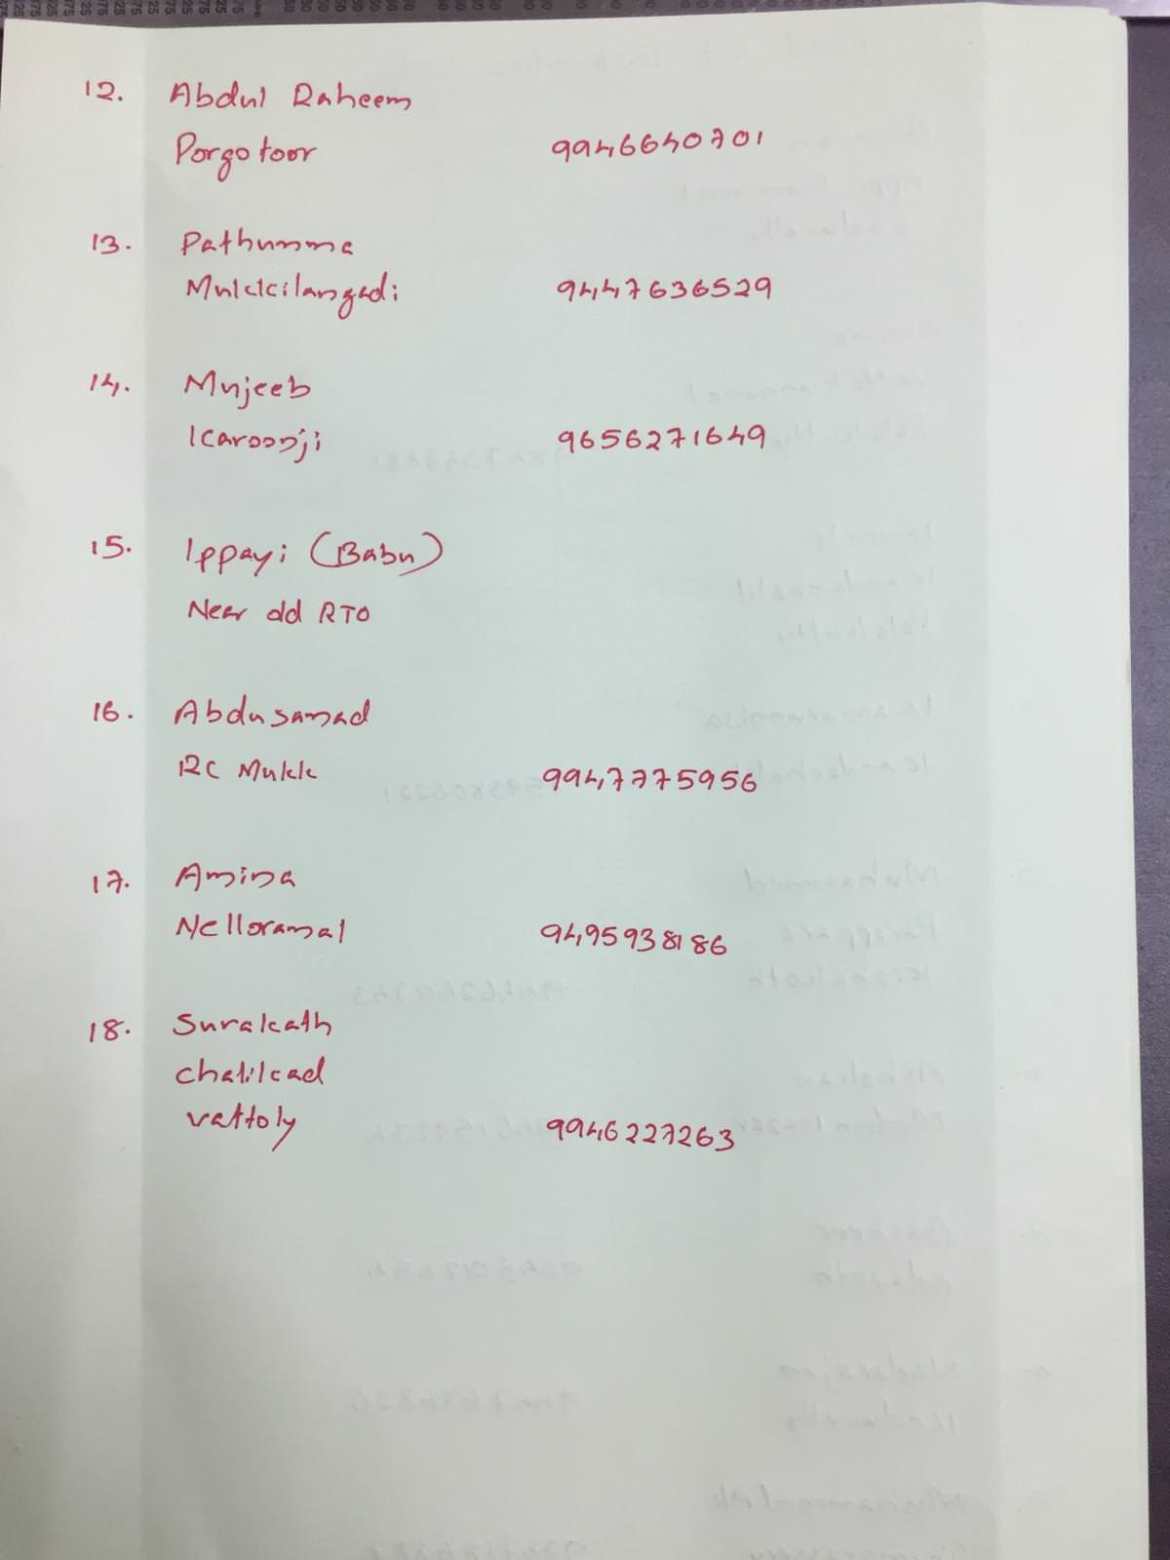 12. Abdul Raheem
Porgotoor 9946640701
13. Pathumma
Mukkilangadi 9447636529
14. Mujeeb
Karoonji 9656271649
15. Ippayi (Babu)
Near old RTO
16. Abdusamad
RC Mukk 9947775956
17. Amina
Nelloramal 9495938186
18. Surakath
chalikad
vattoly 9946227263